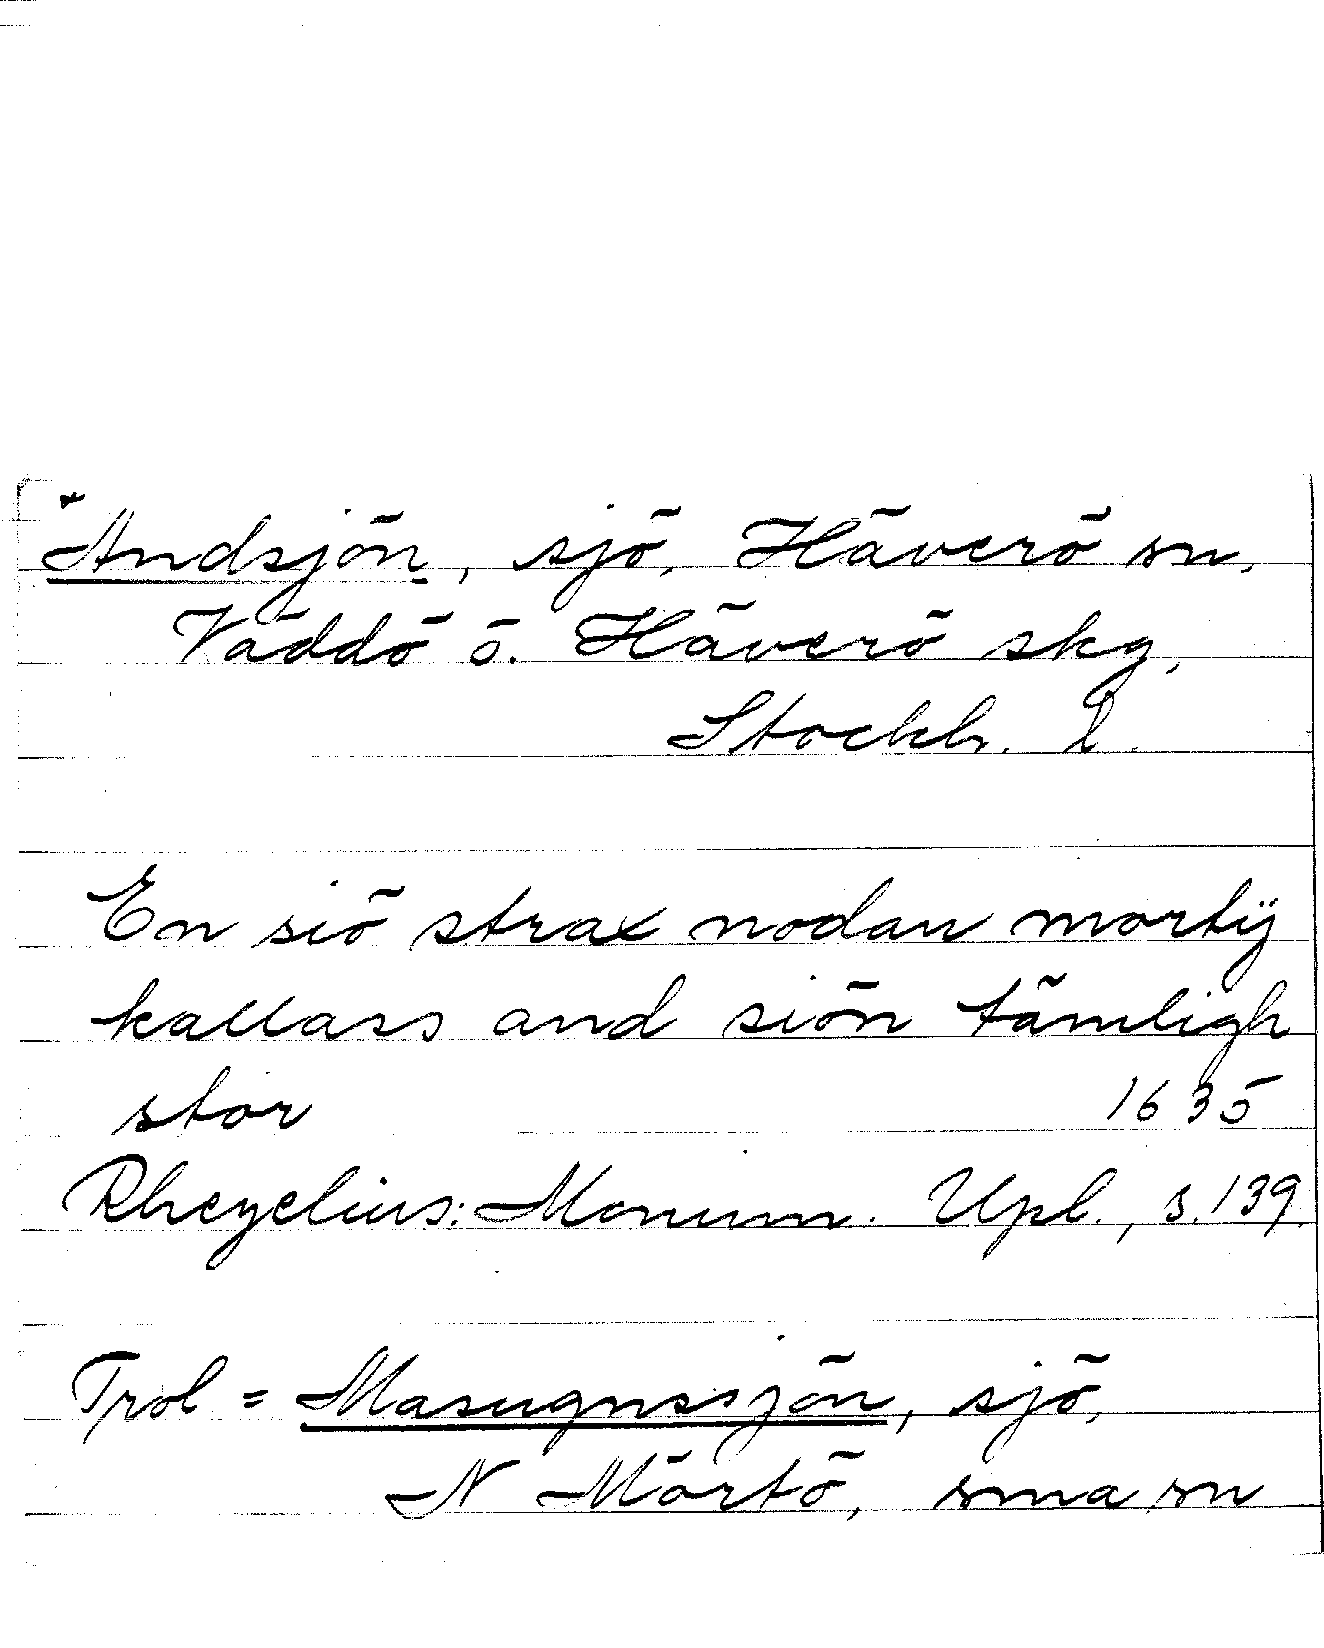 *Andsjön, sjö, Häverö sn,
Väddö o. Häverö skg,
Stockh. l.
En siö strax nodan mortÿ
kallass and siön tämligh
stor 1635
Rhezelius: Monum. Upl., s. 139.
Trol = Masugnssjön, sjö,
N Mörtö, sma sn